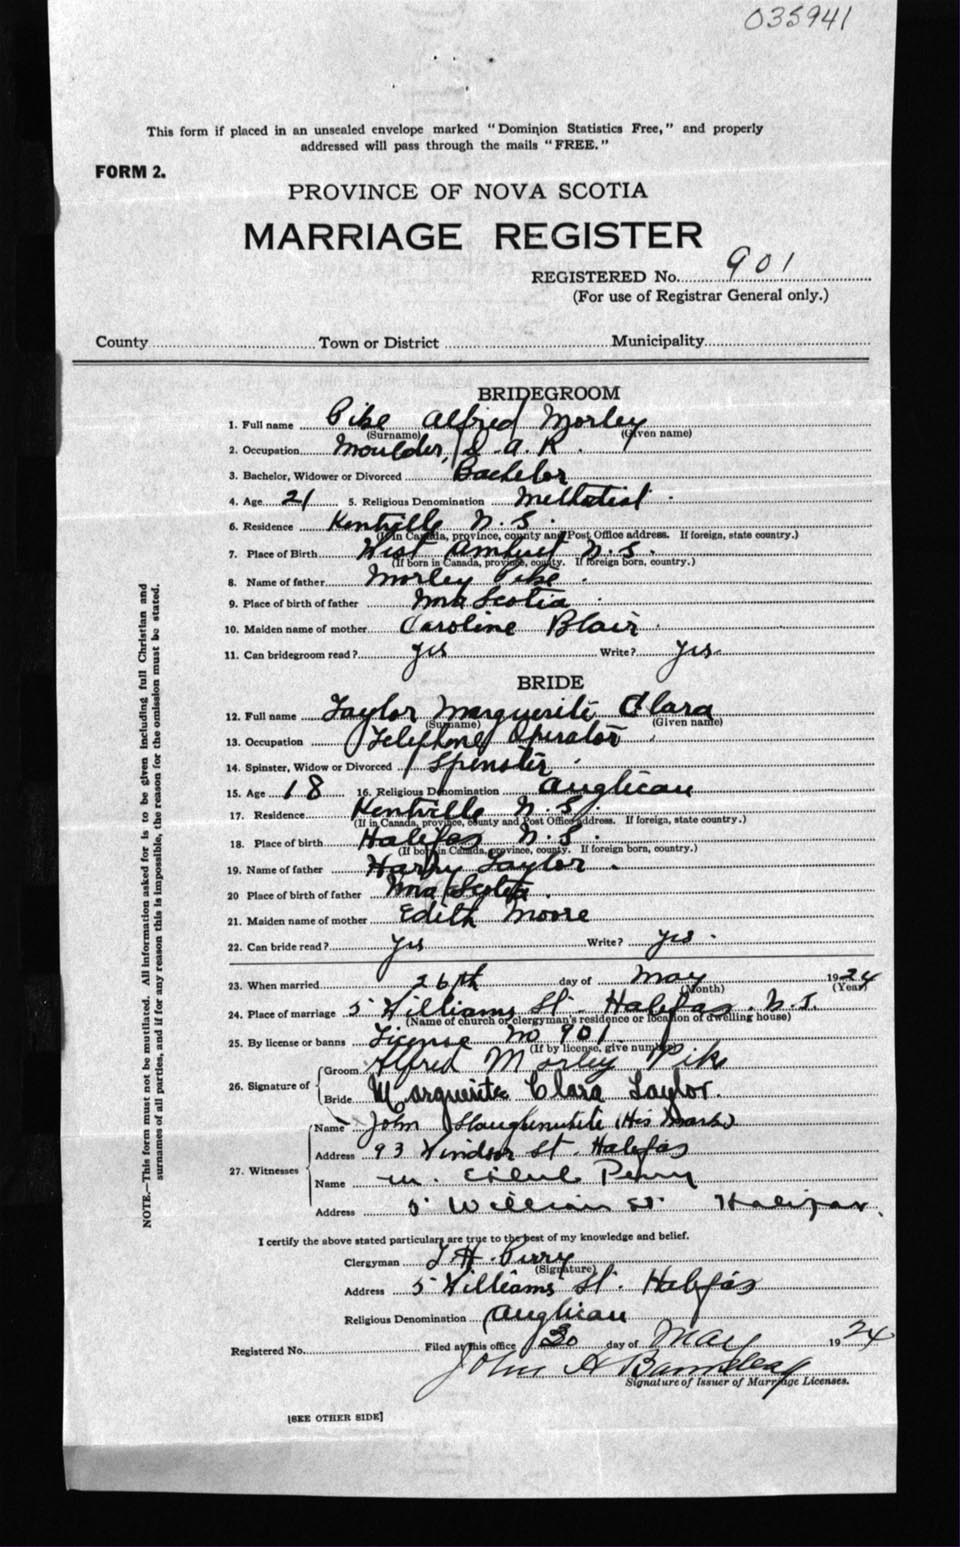 035941
This form if placed in an unsealed envelope marked "Dominion Statistics Free," and properly
addressed will pass through the mails "FREE."
FORM 2.
PROVINCE OF NOVA SCOTIA
MARRIAGE REGISTER
REGISTERED No. 901
(For use of Registrar General only.)
County Town or District Municipality
BRIDEGROOM
1. Full name Pike Alfred Morley
(Surname) (Given name)
2. Occupation Moulder, D. A. R.
3. Bachelor, Widower or Divorced Bachelor
4. Age 21 5. Religious Denomination Methodist
6. Residence Kentville N. S.
(If in Canada, province, county and Post Office address. If foreign, state country.)
7. Place of Birth West Amherst N. S.
(If born in Canada, province, county. If foreign born, country.)
8. Name of father Morley Pike
9. Place of birth of father Nova Scotia
10. Maiden name of mother Caroline Blair
11. Can bridegroom read? yes Write? yes
BRIDE
12. Full name Taylor Marguerite Clara
(Surname) (Given name)
13. Occupation Telephone Operator
14. Spinster, Widow or Divorced Spinster
15. Age 18 16. Religious Denomination Anglican
17. Residence Kentville N. S.
(If in Canada, province, county and Post Office address. If foreign, state country.)
18. Place of birth Halifax N. S.
(If born in Canada, province, county. If foreign born, country.)
19. Name of father Harry Taylor
20 Place of birth of father Nova Scotia
21. Maiden name of mother Edith Moore
22. Can bride read? yes Write? yes
23. When married 26th day of May 1924
(Month) (Year)
24. Place of marriage 5 Williams St. Halifax. N.S.
(Name of church or clergyman's residence or location of dwelling house)
25. By license or banns License No 901
(If by license, give number)
26. Signature of Groom Alfred Morley Pike
Bride Marguerite Clara Taylor.
27. Witnesses Name John Slaughenwhite (His Mark)
Address 93 Windsor St. Halifax
Name Perry
Address 5 William St Halifax.
I certify the above stated particulars are true to the best of my knowledge and belief.
Clergyman T. H. Perry
(Signature)
Address 5 Williams St. Halifax
Religious Denomination Anglican
Registered No. Filed at this office 30 day of May 1924
John A
Signature of Issuer of Marriage Licenses.
[SEE OTHER SIDE]
NOTE.—This form must not be mutilated. All information asked for is to be given including full Christian and
surnames of all parties, and if for any reason this is impossible, the reason for the omission must be stated.